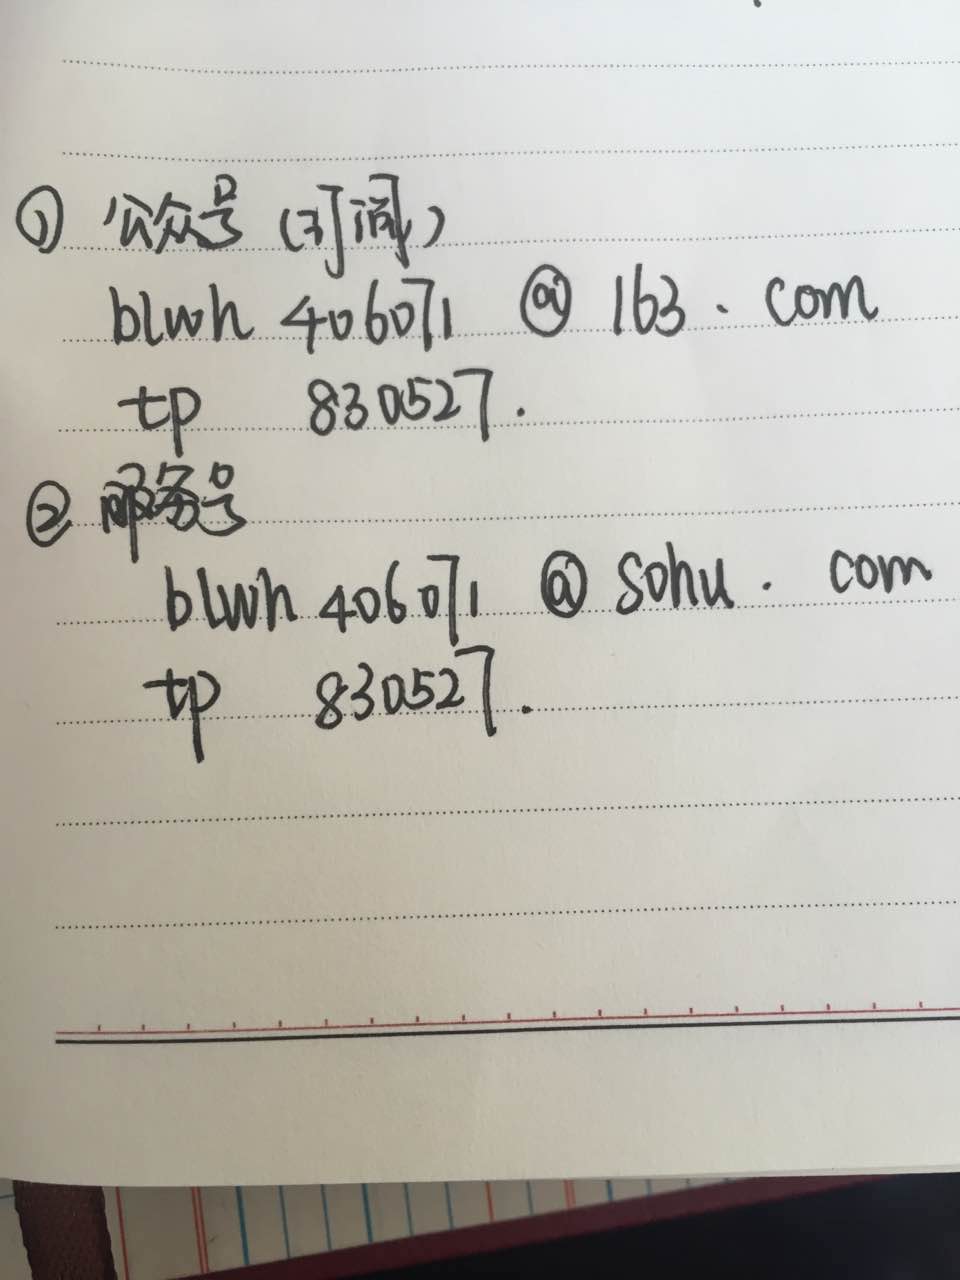 ① 公众号(订阅)
blwh 406071 @ 163 . com
tp 830527.
② 服务号
blwh 406071 @ sohu . com
tp 830527.